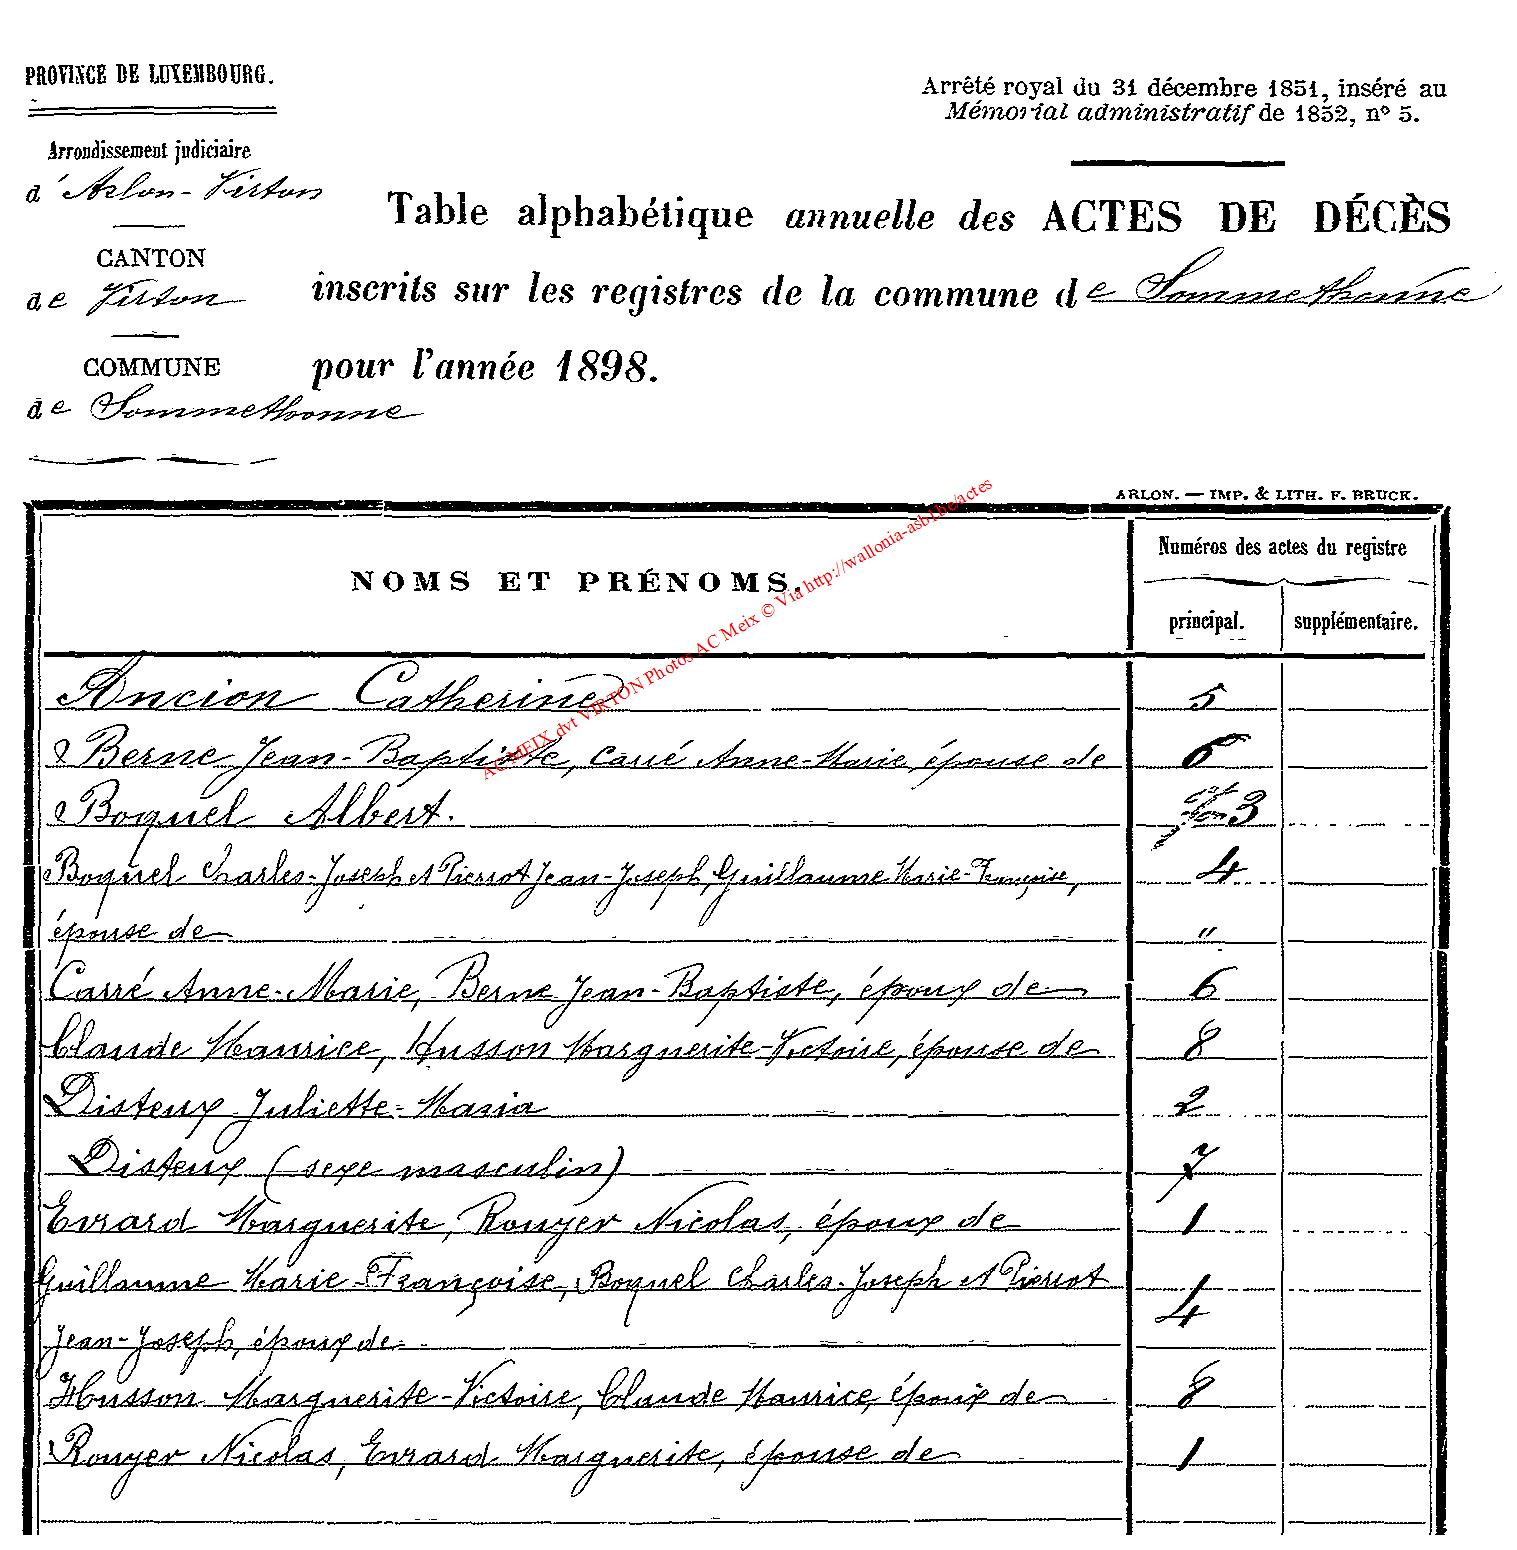 PROVINCE DE LUXEMBOURG.
Arrêté royal du 31 décembre 1851, inséré au
Mémorial administratif de 1852, nº 5.
Arrondissement judiciaire
d' Arlon-Virton
Table alphabétique annuelle des ACTES DE DÉCÈS
CANTON
de Virton
inscrits sur les registres de la commune de Sommethonne
COMMUNE
pour l'année 1898.
de Sommethonne
ARLON. — IMP. & LITH. F. BRUCK.
NOMS ET PRÉNOMS.
Numéros des actes du registre
principal. supplémentaire.
AC MEIX dvt VIRTON Photos AC Meix © Via http://wallonia-asbl.be/actes
Ancion Catherine 5
Berne Jean-Baptiste, Carré Anne-Marie, épouse de 6
Boquel Albert. 3
Boquel Charles-Joseph et Pierrot Jean-Joseph, Guillaume Marie-Françoise, 4
épouse de "
Carré Anne-Marie, Berne Jean-Baptiste, époux de 6
Claude Maurice, Husson Marguerite-Victoire, épouse de 8
Disteux Juliette-Maria 2
Disteux (sexe masculin) 7
Evrard Marguerite, Rouyer Nicolas, époux de 1
Guillaume Marie-Françoise, Boquel Charles-Joseph et Pierrot
Jean-Joseph, époux de 4
Husson Marguerite-Victoire, Claude Maurice, époux de 8
Rouyer Nicolas, Evrard Marguerite, épouse de 1